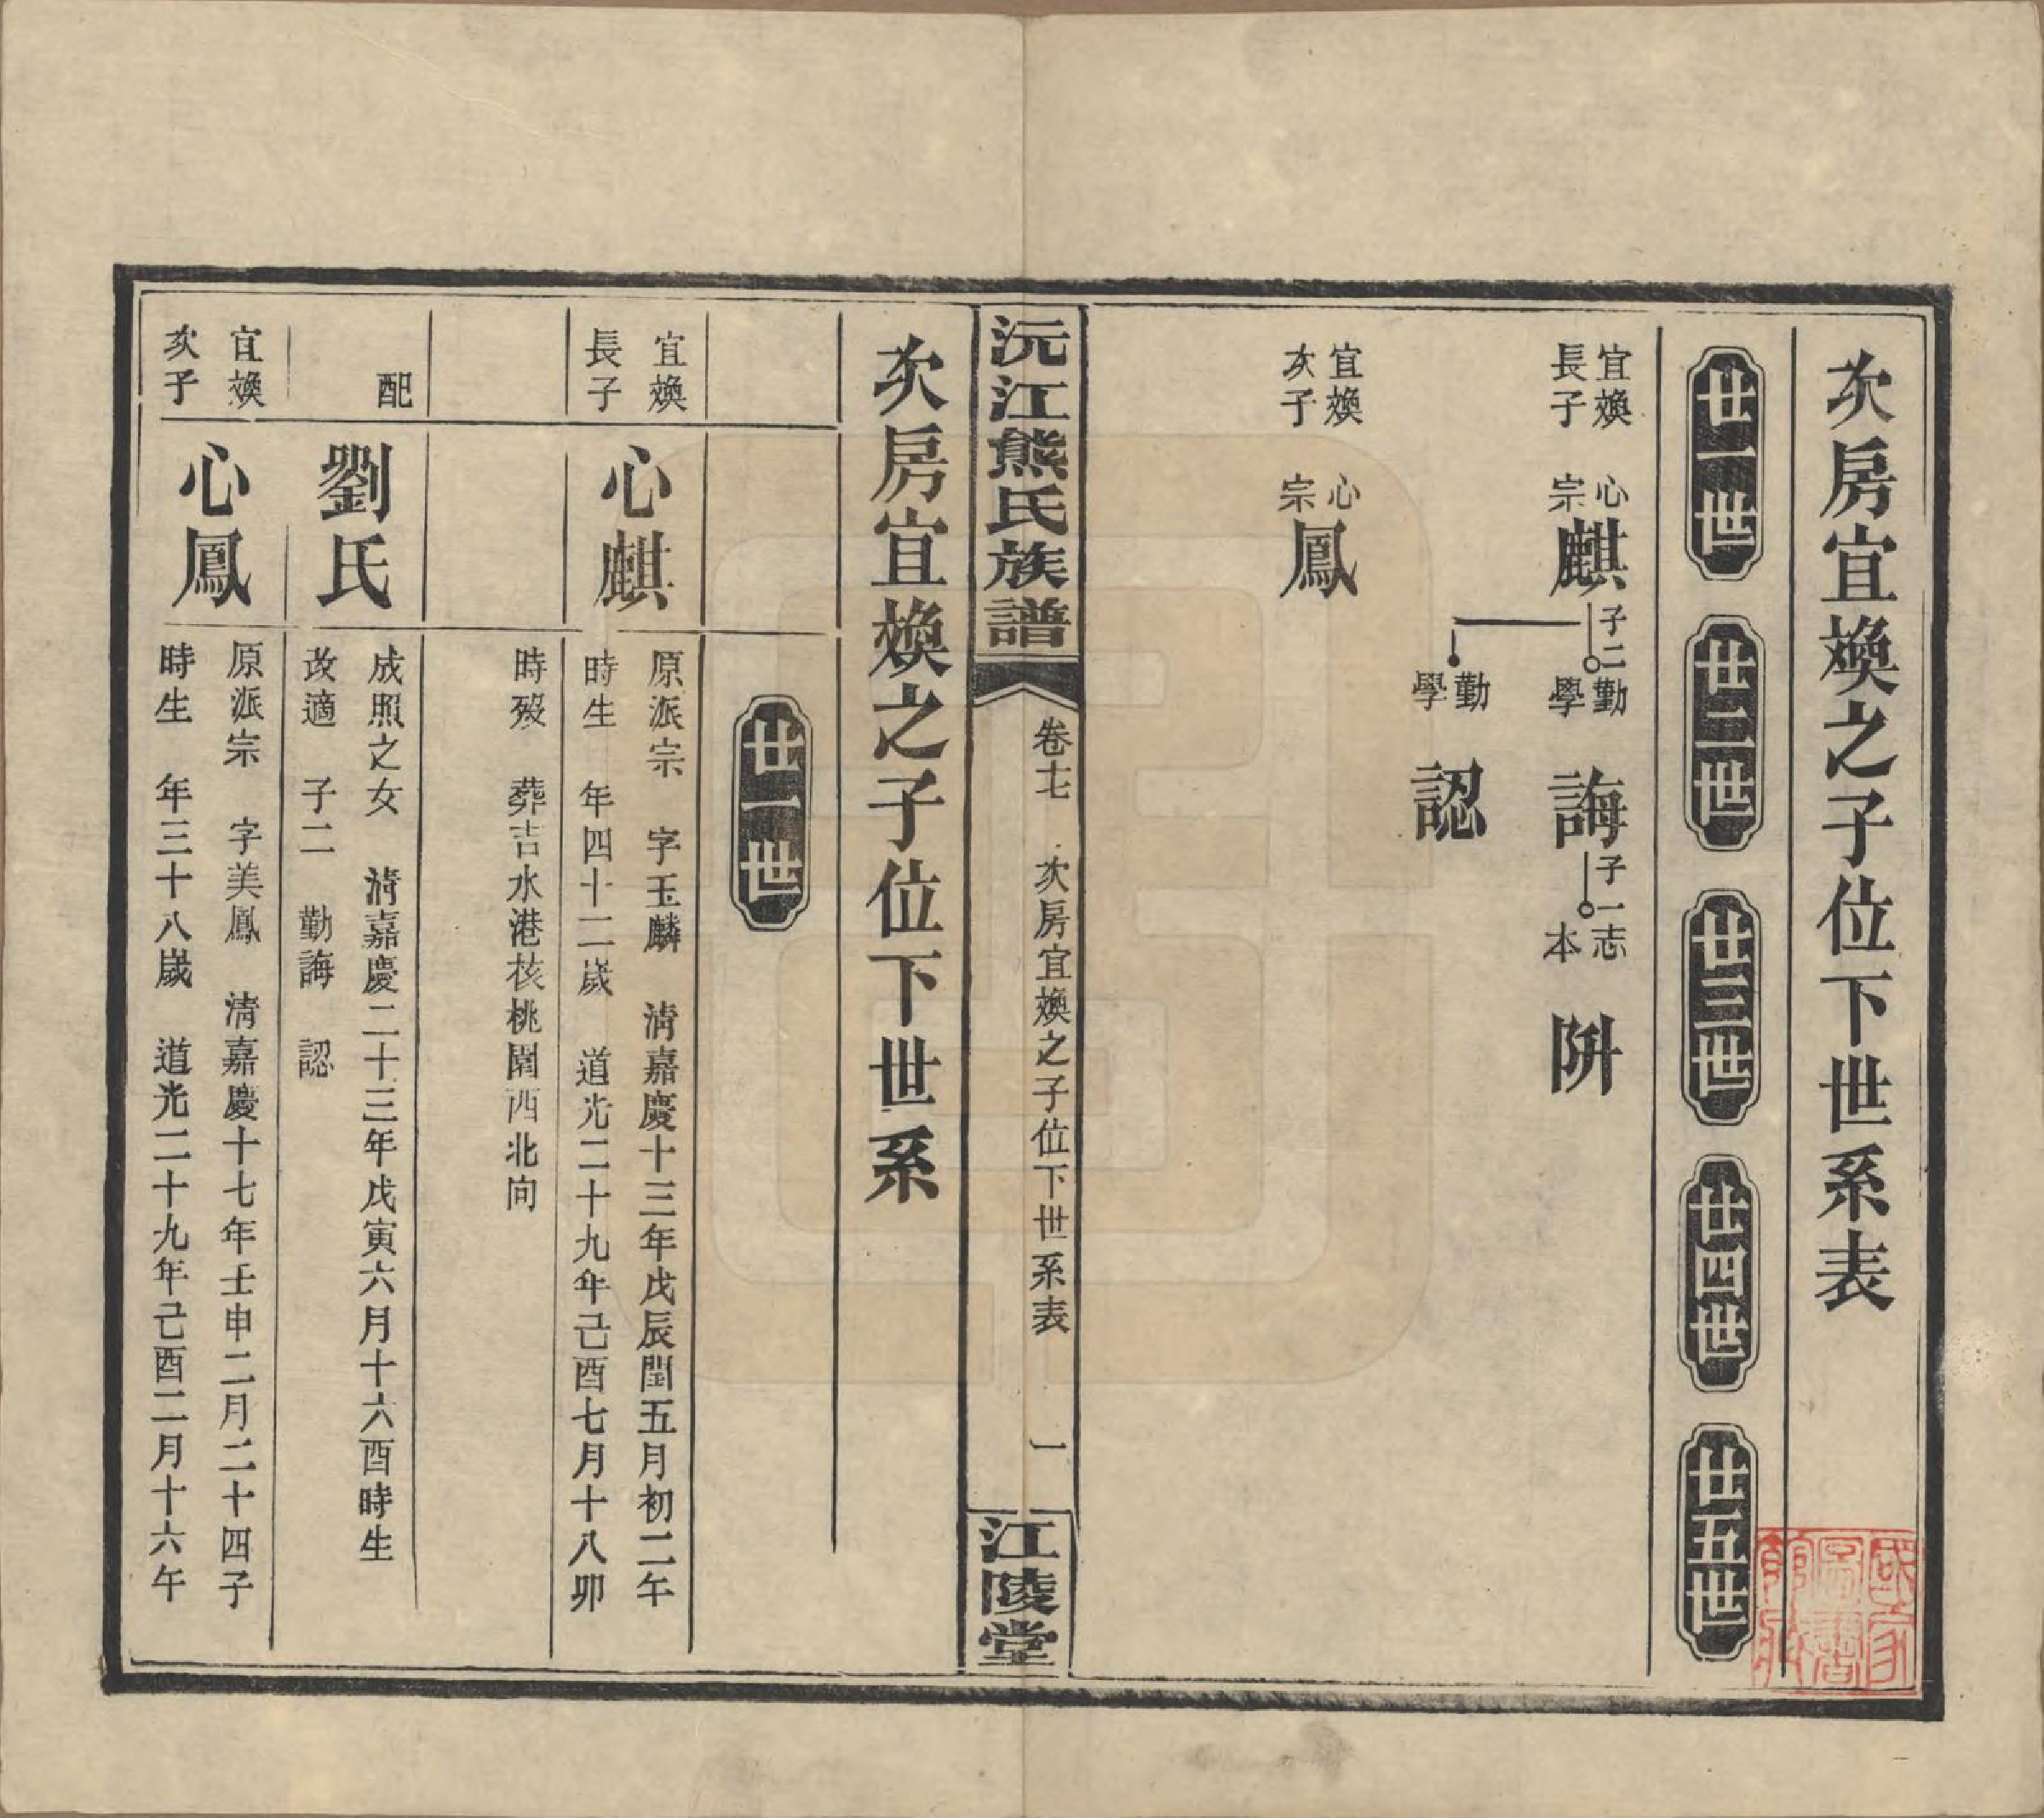 次房宜煥之子位下世系表
廿一世
廿二世
廿三世
廿四世
廿五世
宜煥
長子
心
宗
麒
子二
勤
學
誨
子一
志
本
阱
勤
學
認
宜煥
次子
心
宗
鳳
沅江熊氏族譜
卷十七
次房宜煥之子位下世系表
一
江陵堂
次房宜煥之子位下世系
廿一世
宜煥
長子
心麒
原派宗 字玉麟 清嘉慶十三年戊辰閏五月初二午
時生 年四十二歲 道光二十九年己酉七月十八卯
時歿 葬吉水港核桃園西北向
配
劉氏
成照之女 清嘉慶二十三年戊寅六月十六酉時生
改適 子二 勤誨 認
宜煥
次子
心鳳
原派宗 字美鳳 清嘉慶十七年壬申二月二十四子
時生 年三十八歲 道光二十九年己酉二月十六午
國家
圖書
館藏